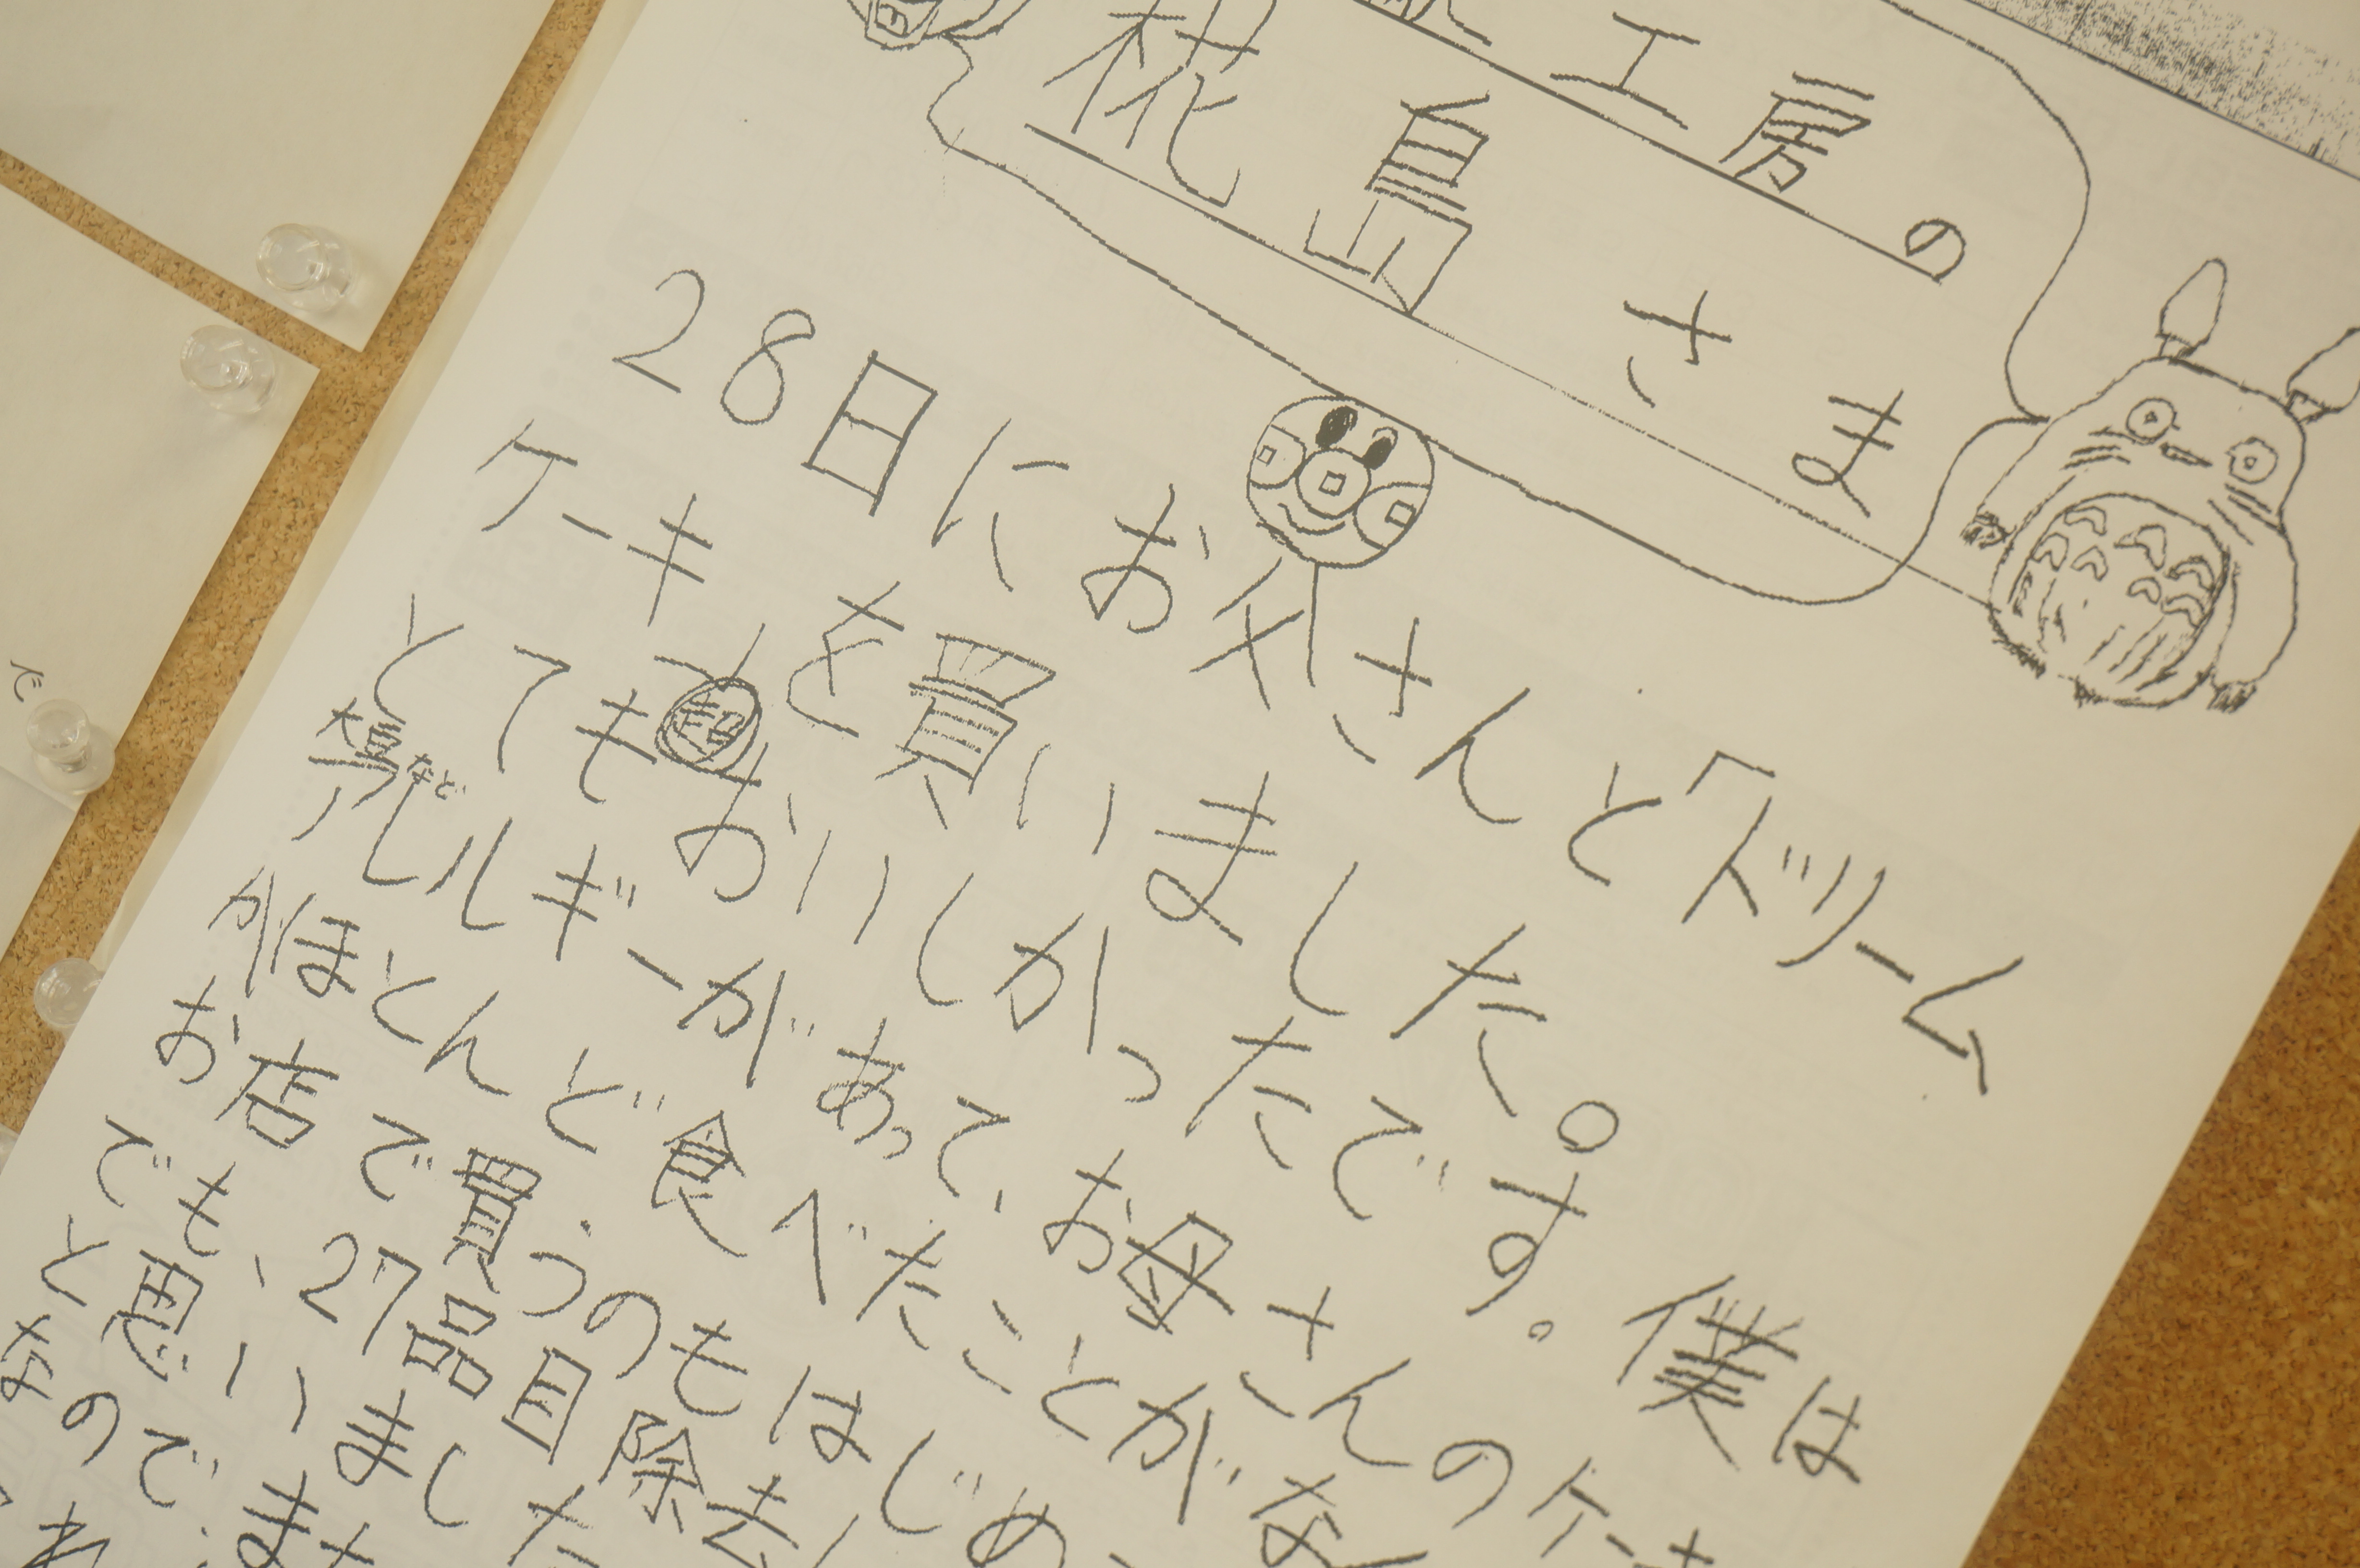 工房の
椛島さま
28日にお父さんと「ドリーム
ケーキを買いました。
とてもおいしかったです。僕は
大豆など
アレルギーがあって、お母さんのケーキ
がほとんど食べたことがな
お店で買うのもはじめ
でも、27品目除去
と思いました
なので、ま